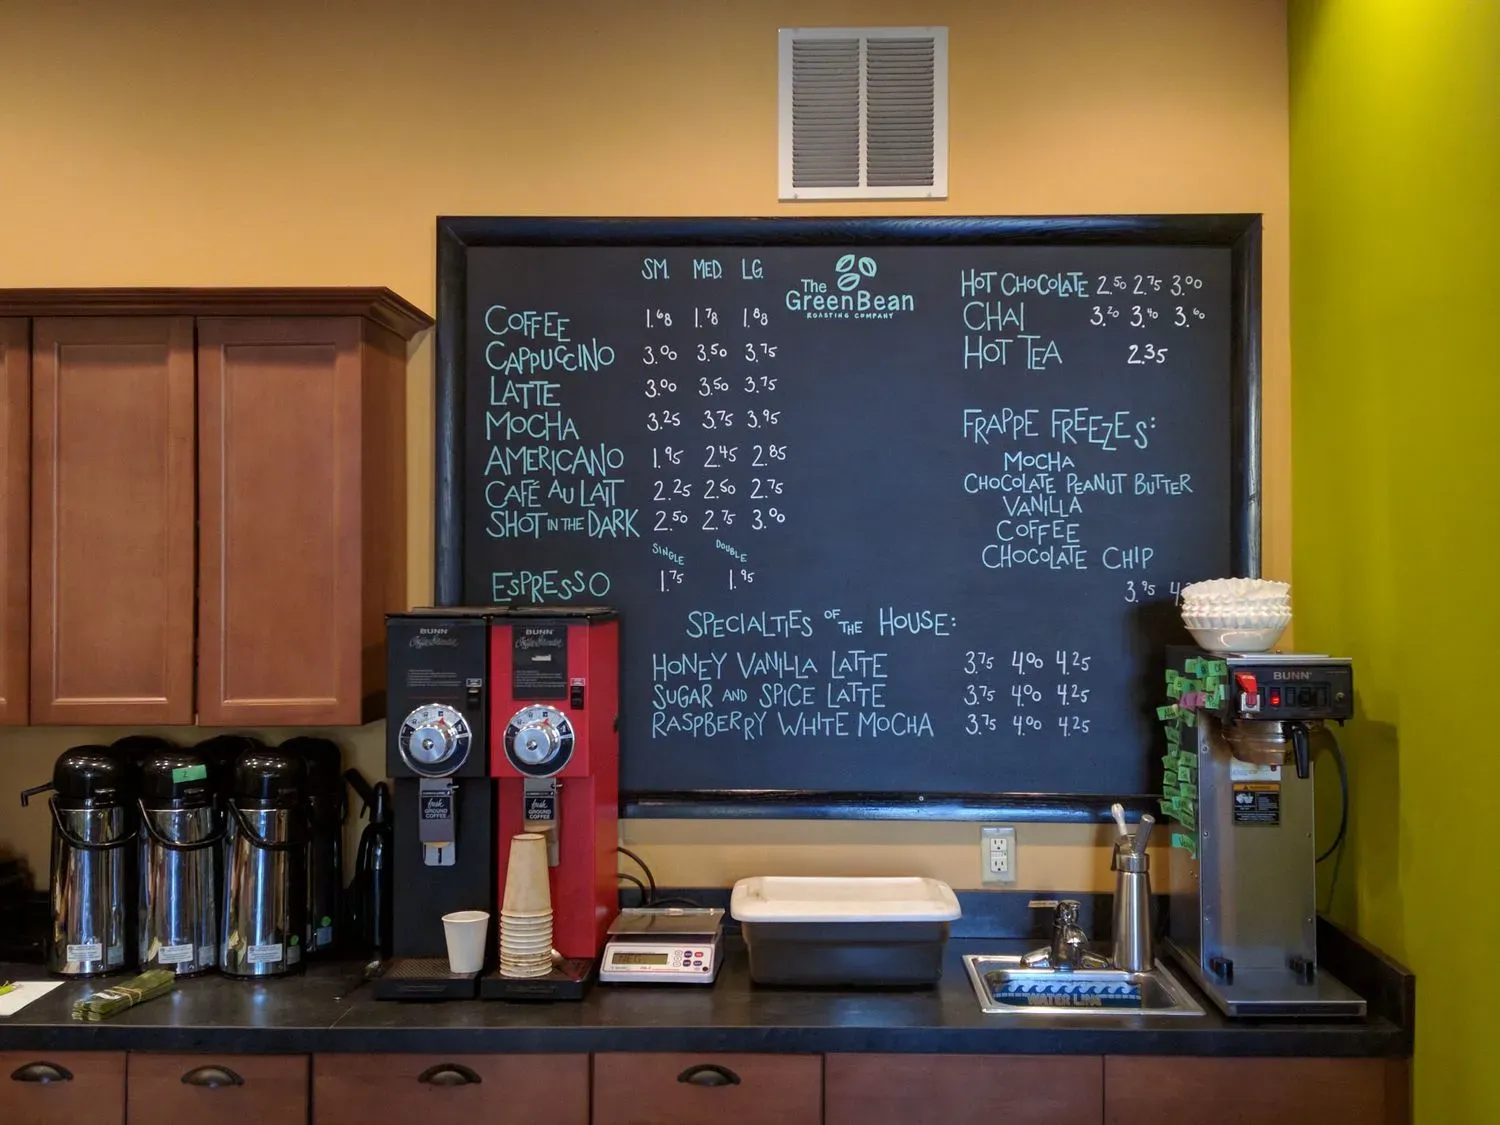 SM. MED. LG.
COFFEE 1.68 1.78 1.88
CAPPUCCINO 3.00 3.50 3.75
LATTE 3.00 3.50 3.75
MOCHA 3.25 3.75 3.95
AMERICANO 1.95 2.45 2.85
CAFÉ AU LAIT 2.25 2.50 2.75
SHOT IN THE DARK 2.50 2.75 3.00
SINGLE DOUBLE
ESPRESSO 1.75 1.95
The
GreenBean
ROASTING COMPANY
HOT CHOCOLATE 2.50 2.75 3.00
CHAI 3.20 3.40 3.60
HOT TEA 2.35
FRAPPE FREEZES:
MOCHA
CHOCOLATE PEANUT BUTTER
VANILLA
COFFEE
CHOCOLATE CHIP
3.95 4.
SPECIALTIES OF THE HOUSE:
HONEY VANILLA LATTE 3.75 4.00 4.25
SUGAR AND SPICE LATTE 3.75 4.00 4.25
RASPBERRY WHITE MOCHA 3.75 4.00 4.25
BUNN
BUNN
fresh
GROUND
COFFEE
fresh
GROUND
COFFEE
BUNN
WATER LINE